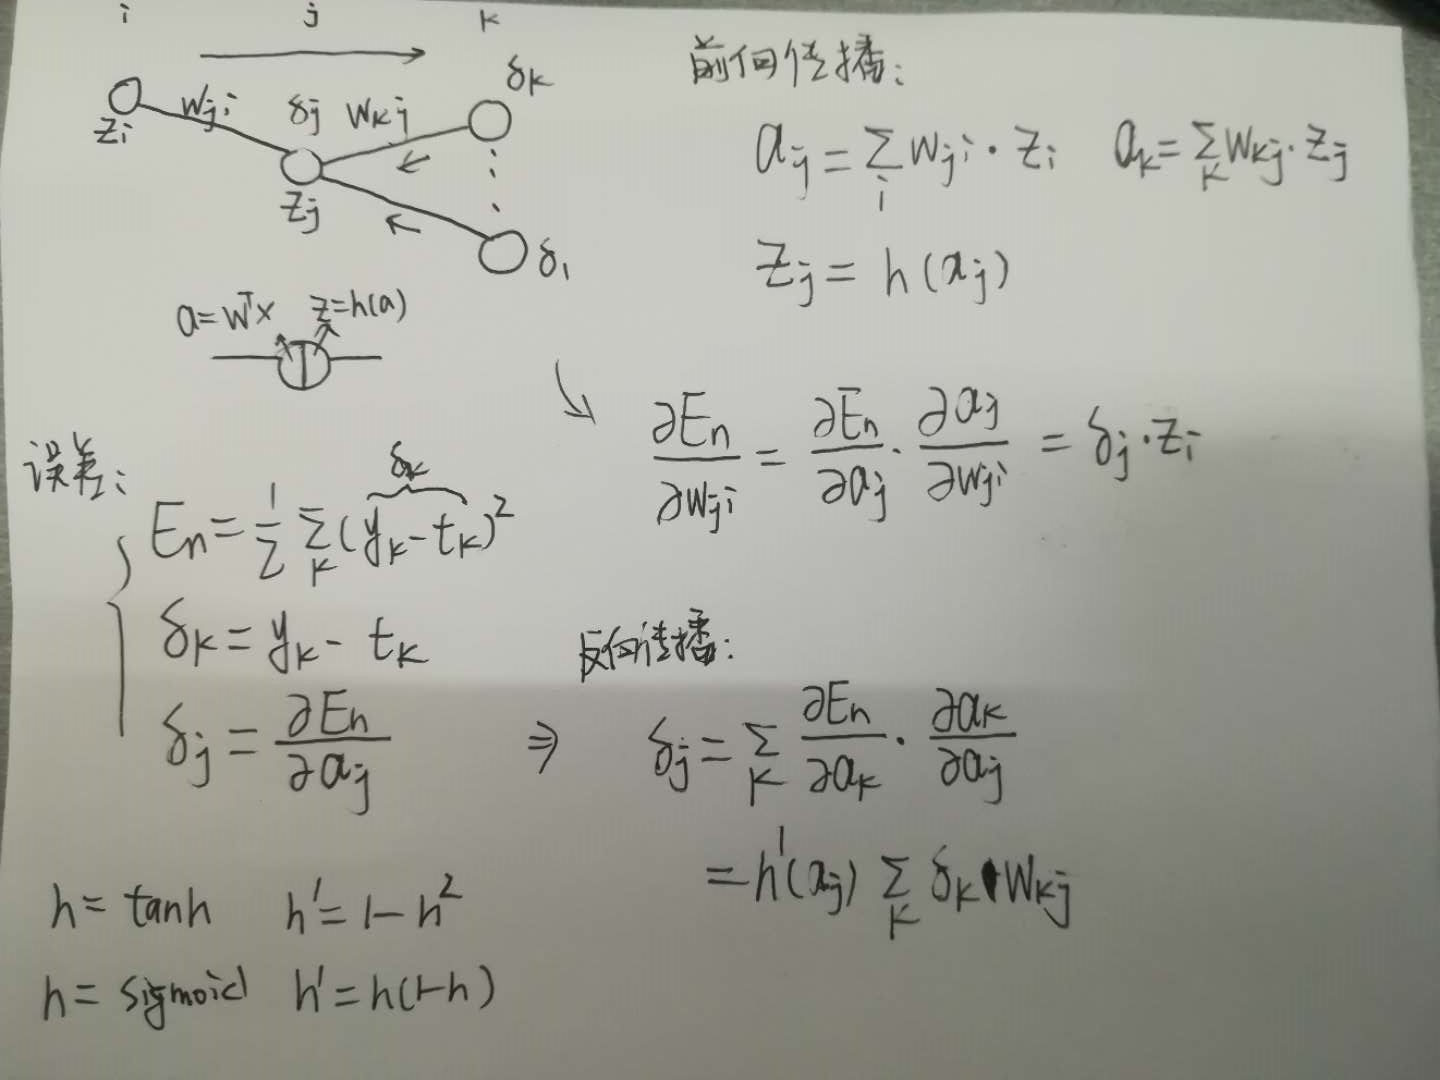 i j k
δk
wji δj wkj
zi
zj
δ1
a=wᵀx z=h(a)
前向传播:
aj = Σi wji · zi ak = Σk wkj · zj
zj = h(aj)
∂En/∂wji = ∂En/∂aj · ∂aj/∂wji = δj · zi
误差:
δk
En = 1/2 Σk (yk - tk)²
δk = yk - tk
δj = ∂En/∂aj ⇒
反向传播:
δj = Σk ∂En/∂ak · ∂ak/∂aj
= h'(aj) Σk δk · wkj
h = tanh h' = 1 - h²
h = sigmoid h' = h(1-h)